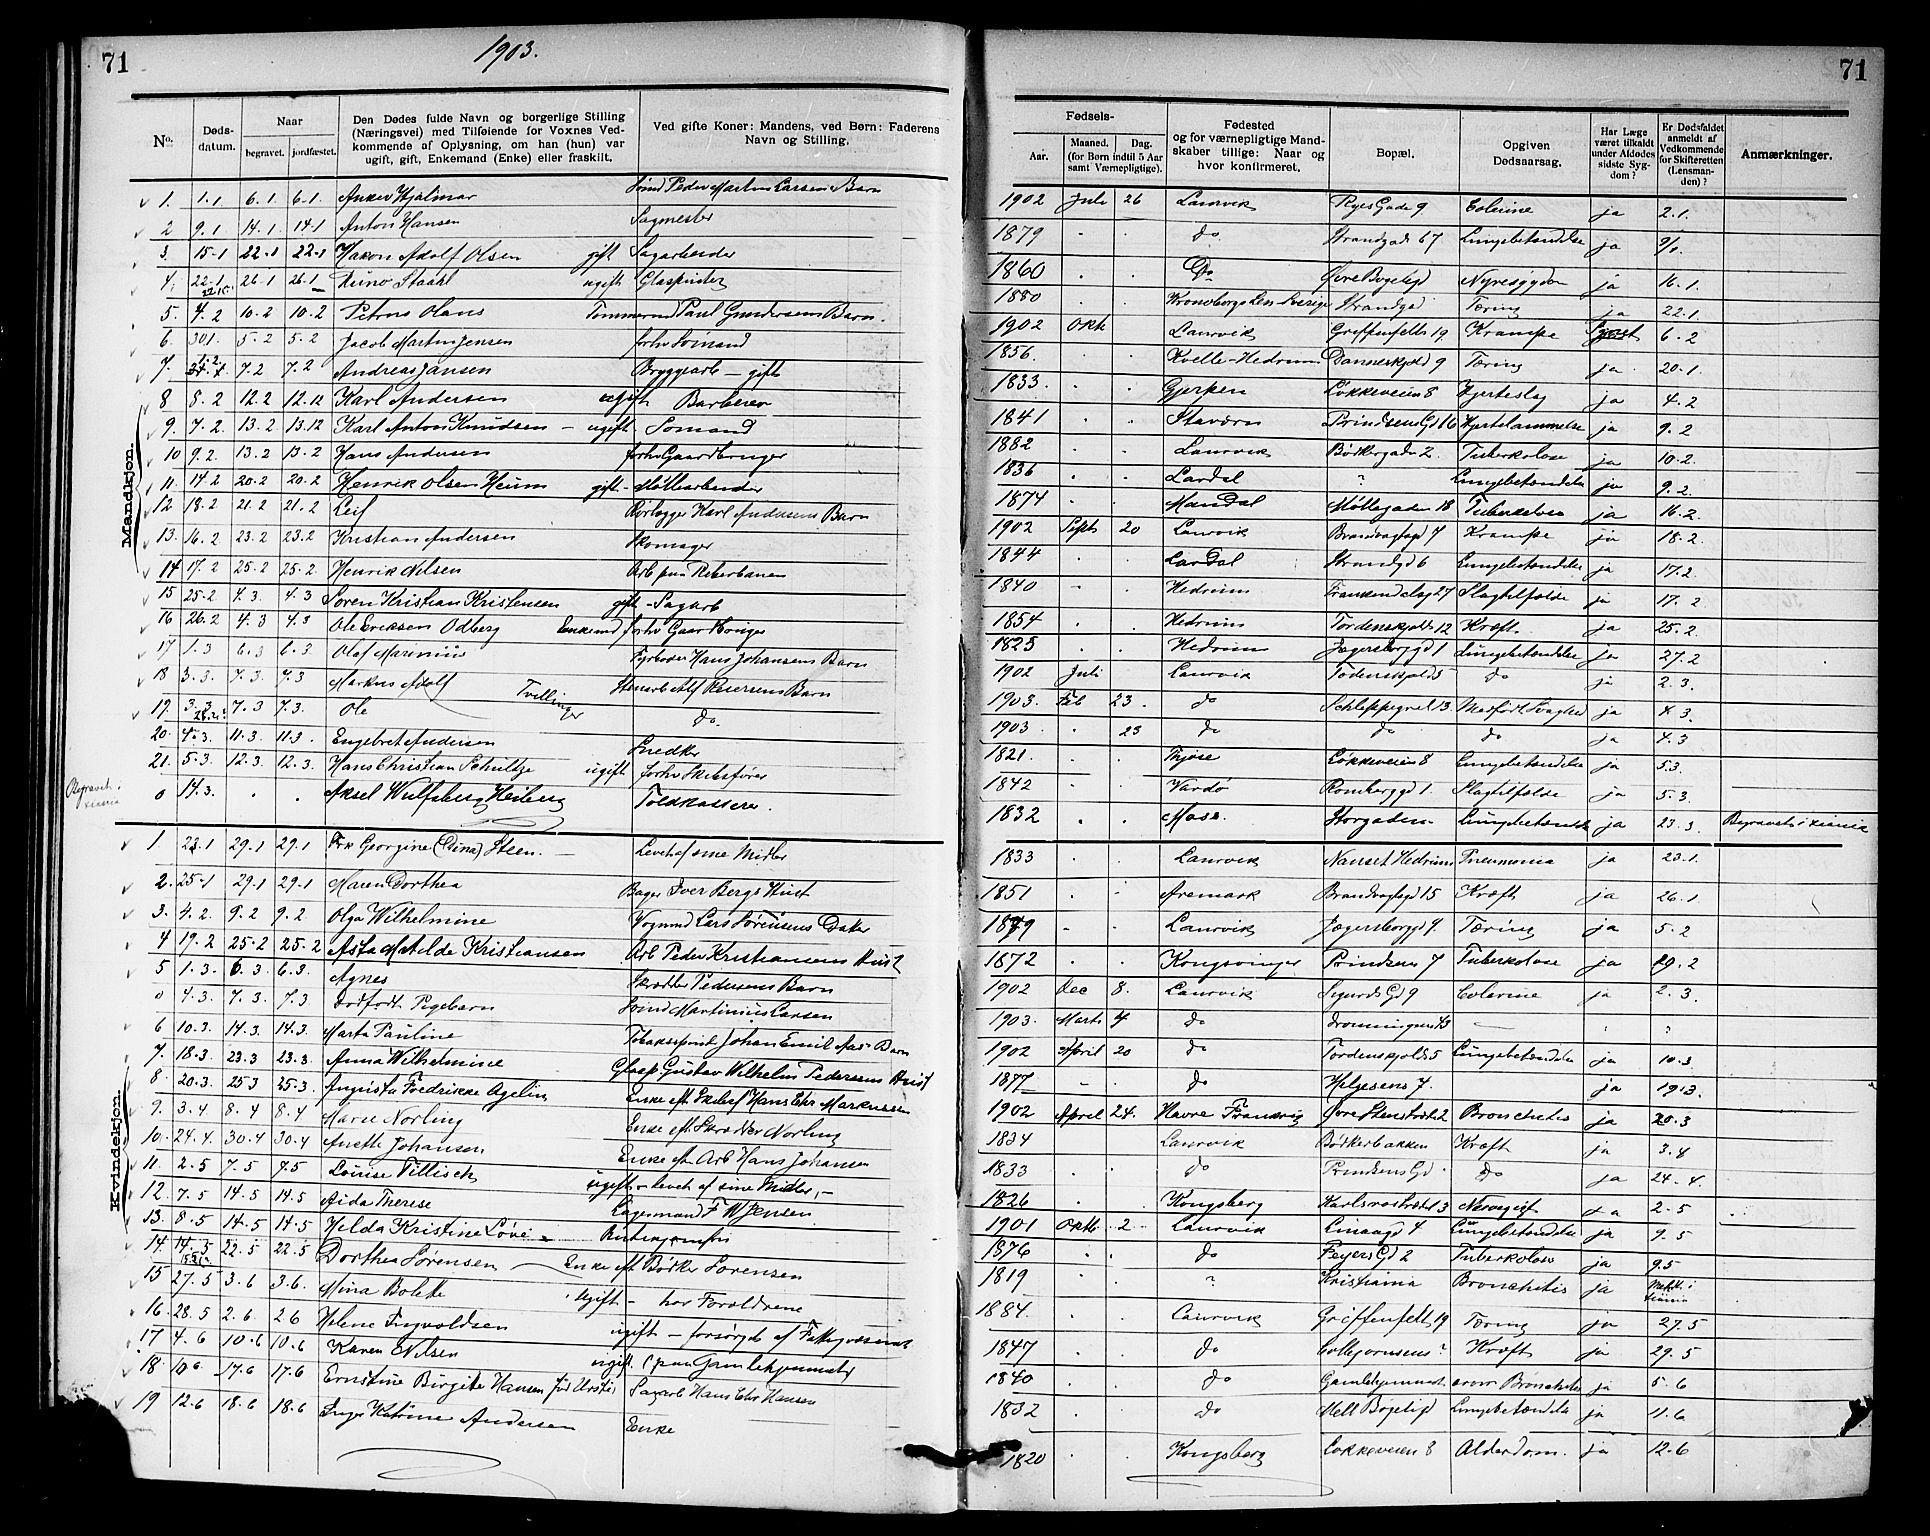 71
1903.
71
No.
Døds-
datum.
Naar
begravet.
jordfæstet.
Den Dødes fulde Navn og borgerlige Stilling
(Næringsvei) med Tilføiende for Voxnes Ved-
kommende af Oplysning, om han (hun) var
ugift, gift, Enkemand (Enke) eller fraskilt.
Ved gifte Koner: Mandens, ved Børn: Faderens
Navn og Stilling.
Fødsels-
Aar.
Maaned.
Dag.
(for Børn indtil 5 Aar
samt Værnepligtige).
Fødested
og for værnepligtige Mand-
skaber tillige: Naar og
hvor konfirmeret.
Bopæl.
Opgiven
Dødsaarsag.
Har Læge
været tilkaldt
under Afdødes
sidste Syg-
dom?
Er Dødsfaldet
anmeldt af
Vedkommende
for Skifteretten
(Lensman-
den)?
Anmærkninger.
Mandkjøn.
1. 1.1 6.1. 6.1. Hjalmar Peder Martin Larsens Barn 1902 Juli 26 Laurvik Ryes Gade 9 Colerine ja 2.1.
2 9.1 14.1 14.1 Anton Hansen Sagmester 1879 do Strandgade 67 Lungebetændelse ja
3. 15.1 22.1 22.1 Haxon Adolf Olsen gift Sagarbeider 1860 Do Øvre Bøgeligd Nyresygdom ja 16.1.
4. 22.1 26.1 26.1 Staahl ugift Glaspuster 1880 Kronobergs Len Sverige Strandgd Tæring ja 22.1.
5. 4.2 10.2 10.2 Petrus Olaus Tømmermd Paul Gundersens Barn. 1902 Okt Laurvik Griffenfelts 19 Krampe 6.2
6. 30.1. 5.2 5.2 Jacob Martin Jensen forhv Sømand 1856. Kvelle-Hedrum Danneskjold 9 Tæring ja 20.1.
7. 7.2 7.2 Andreas Jansen Bryggearb - gift 1833. Gjerpen Løkkeveien 8 Hjerteslag ja 4.2
8 8.2 12.2 12.12 Karl Andersen ugift Barberer 1841 Stavern Prindsens Gd 16 Hjertelammelse ja 9.2
9. 7.2. 13.2 13.12 Karl Anton Knudsen - ugift Sømand 1882 Laurvik Bødkergade 2. Tuberkolose ja 10.2.
10 9.2. 13.2 13.2 Hans Andersen forhv Gaardbruger 1836 Lardal " Lungebetændelse ja 9.2.
11. 14.2 20.2 20.2 Henrik Olsen Heum gift - Møllearbeider 1874 Mandal Møllegaden 18 Tuberkolose ja 16.2.
12 18.2 21.2 21.2 Leif Rørlægger Karl Andersens Barn 1902 Sept 20 Laurvik Brandvagtsgd 7 Krampe ja 18.2.
13. 16.2 23.2 23.2 Kristian Andersen Skomager 1844 Lardal Strandgd 6 Lungebetændelse ja 17.2.
14 17.2 25.2 25.2. Henrik Nilsen Arb paa Reberbanen 1840 Hedrum 27 Slagtilfælde ja 17.2
15 25.2 4.3. 4.3 Søren Kristian Kristensen gift - Sagarb 1854 Hedrum Tordenskjolds 12 Kræft ja 25.2.
16 26.2 4.3 4.3 Ole Eriksen Odberg Enkemd forhv Gaardbruger 1825 Hedrum Jægersborggd 1 Lungebetændelse ja 27.2
17 1.3 6.3 6.3 Olaf Marenius Fyrbøder Hans Johansens Barn 1902 Juli Laurvik Tordenskjold 5 do ja 2.3.
18 3.3. 7.3. 7.3 Markus Adolf Tvillinger Barn 1903. Feb 23. do Schleppegrel 13. Medfødt Svaghed ja 4.3.
19. 3.3 7.3 7.3. Ole do. 1903. 23 do do do ja 4.3
20. 4.3. 11.3. 11.3. Engebret Andersen Snedker 1821. Tjøse Løkkeveien 8 Lungebetændelse ja 5.3.
21. 5.3. 12.3. 12.3. Hans Christian Schultze ugift forhv Skibsfører 1842 Vardø 1. Slagtilfælde ja 5.3.
Begravet i Xiania 0 14.3. Aksel Wulfsberg Heiberg Toldkasserer. 1832 Moss. Storgaden Lungebetændelse ja 23.3. Begravet i Xiania
Kvindekjøn.
1 23.1 29.1 29.1 Frk Georgine (Dina) Steen. Levet af sine Midler 1833 Laurvik Nanset Hedrum Pneumonia ja 23.1.
2. 25.1 29.1 29.1 Maren Dorthea Bager Iver Bergs Hust 1851 Aremark Brandvagtsgd 15 Kræft ja 26.1
3. 4.2. 9.2 9.2 Olga Wilhelmine Vognmd Lars Sørensens Datter 1879 Laurvik Jægersborggd 9. Tæring ja 5.2
4 19.2 25.2 25.2 Asta Matilde Kristiansen Arb Peder Kristiansens Hust 1872 Kongsvinger Prindsens 7 Tuberkolose ja 29.2
5 1.3. 6.3 6.3. Agnes Skrædder Pedersens Barn 1902 Dec 8. Laurvik Sigurds Gd 9 Colerine ja 2.3.
0 4.3. 7.3. 7.3. Dødfødt Pigebarn Martinius Larsen 1903. Marts 4 do Dronningens 43
6 10.3. 14.3. 14.3. Marta Pauline Tobaksspind Johan Emil Aas' Barn 1902 April 20 do Tordenskjolds 5 Lungebetændelse ja 10.3
7. 18.3. 23.3 23.3. Anna Wilhelmine Glasp. Gustav Wilhelm Pedersens Hust 1877 do Helgesens 7. ja 19.3.
8. 20.3. 25.3 25.3. Augusta Fredrikke Agelin Enke eft Skibsf Hans Chr Markussen 1902 April 24. Havre Frankrig Øvre Stenstrædet 2 Bronchitis ja 20.3
9. 3.4 8.4 8.4 Maren Norling Enke eft Skrædder Norling 1834 Laurvik Bødkerbakken Kræft ja 3.4
10. 24.4. 30.4 30.4 Anette Johansen Enke eft Arb Hans Johansen 1833 do Prindsens Gd do ja 24.4.
11. 2.5 7.5 7.5 Louise Tillisch ugift - levet af sine Midler,- 1826 Kongsberg Karlsrostrædet 3 Nervegigt ja 2.5
12. 7.5 14.5 14.5 Aida Therese Lagermand F W Jensen 1901 Oktb. 2. Laurvik Linaagd 4 Lungebetændelse ja 9.5
13. 8.5 14.5 14.5 Hilda Kristine Løve Butikjomfru 1876 do Feyers Gd 2 Tuberkolose ja 9.5
14. 14.5 22.5 22.5 Dorthea Sørensen Enke eft Bødker Sørensen 1819 " Kristiania Bronchitis ja Meldt i Xiania
15 27.5 3.6 3.6. Mina Bolette Ugift - hos Forældrene 1884. Laurvik Griffenfelt 19 Tæring ja 27.5
16. 28.5 2.6. 2.6 Helene Ingvoldsen ugift - forsørget af Fattigvæsenet 1847 do Kræft ja 29.5
17 4.6 10.6 10.6 Karen Nilsen ugift (paa Gamlehjemmet) 1840 do Gamlehjemmet Bronchitis ja 5.6
18. 10.6 17.6 17.6 Ernstine Birgitte Hansen Sagarb Hans Chr Hansen 1832 do Mell Bøgeligd Lungebetændelse ja 11.6
19 12.6 18.6 18.6 Inger Katrine Andersen Enke 1820 Kongsberg Løkkeveien 8 Alderdom. ja 12.6